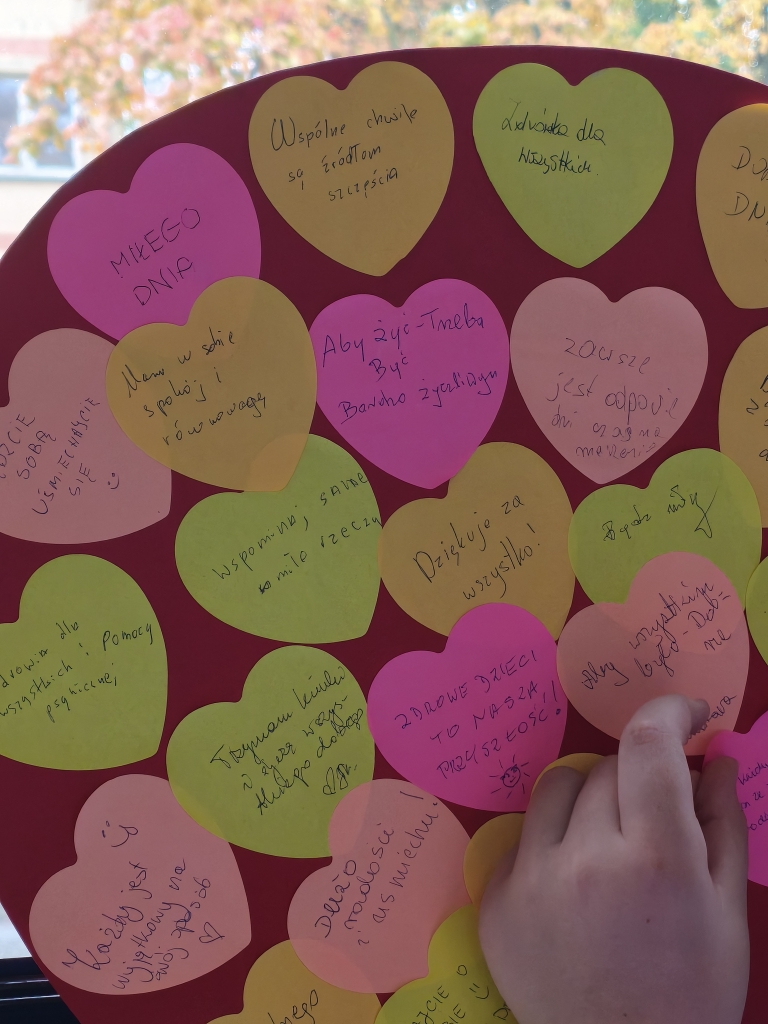 Wspólne chwile
są źródłem
szczęścia
Zdrówka dla
Wszystkich.
DNI
MIŁEGO
DNIA
Mam w sobie
spokój i
równowagę
Aby żyć-Trzeba
Być
Bardzo życzliwym
zawsze
jest odpowie
dni czas na
marzenia
SOBĄ
UŚMIECHAJCIE
SIĘ
Wspominaj same
miłe rzeczy
Dziękuję za
wszystko!
Bądź miły
wszystkich i pomocy
psychicznej
Trzymam kciuki
i życzę wszys-
tkiego dobrego
ZDROWE DZIECI
TO NASZA
PRZYSZŁOŚĆ!
Aby wszystkim
było-Dob=
rze
Każdy jest
wyjątkowy na
swój sposób
Dużo
radości
i uśmiechu!